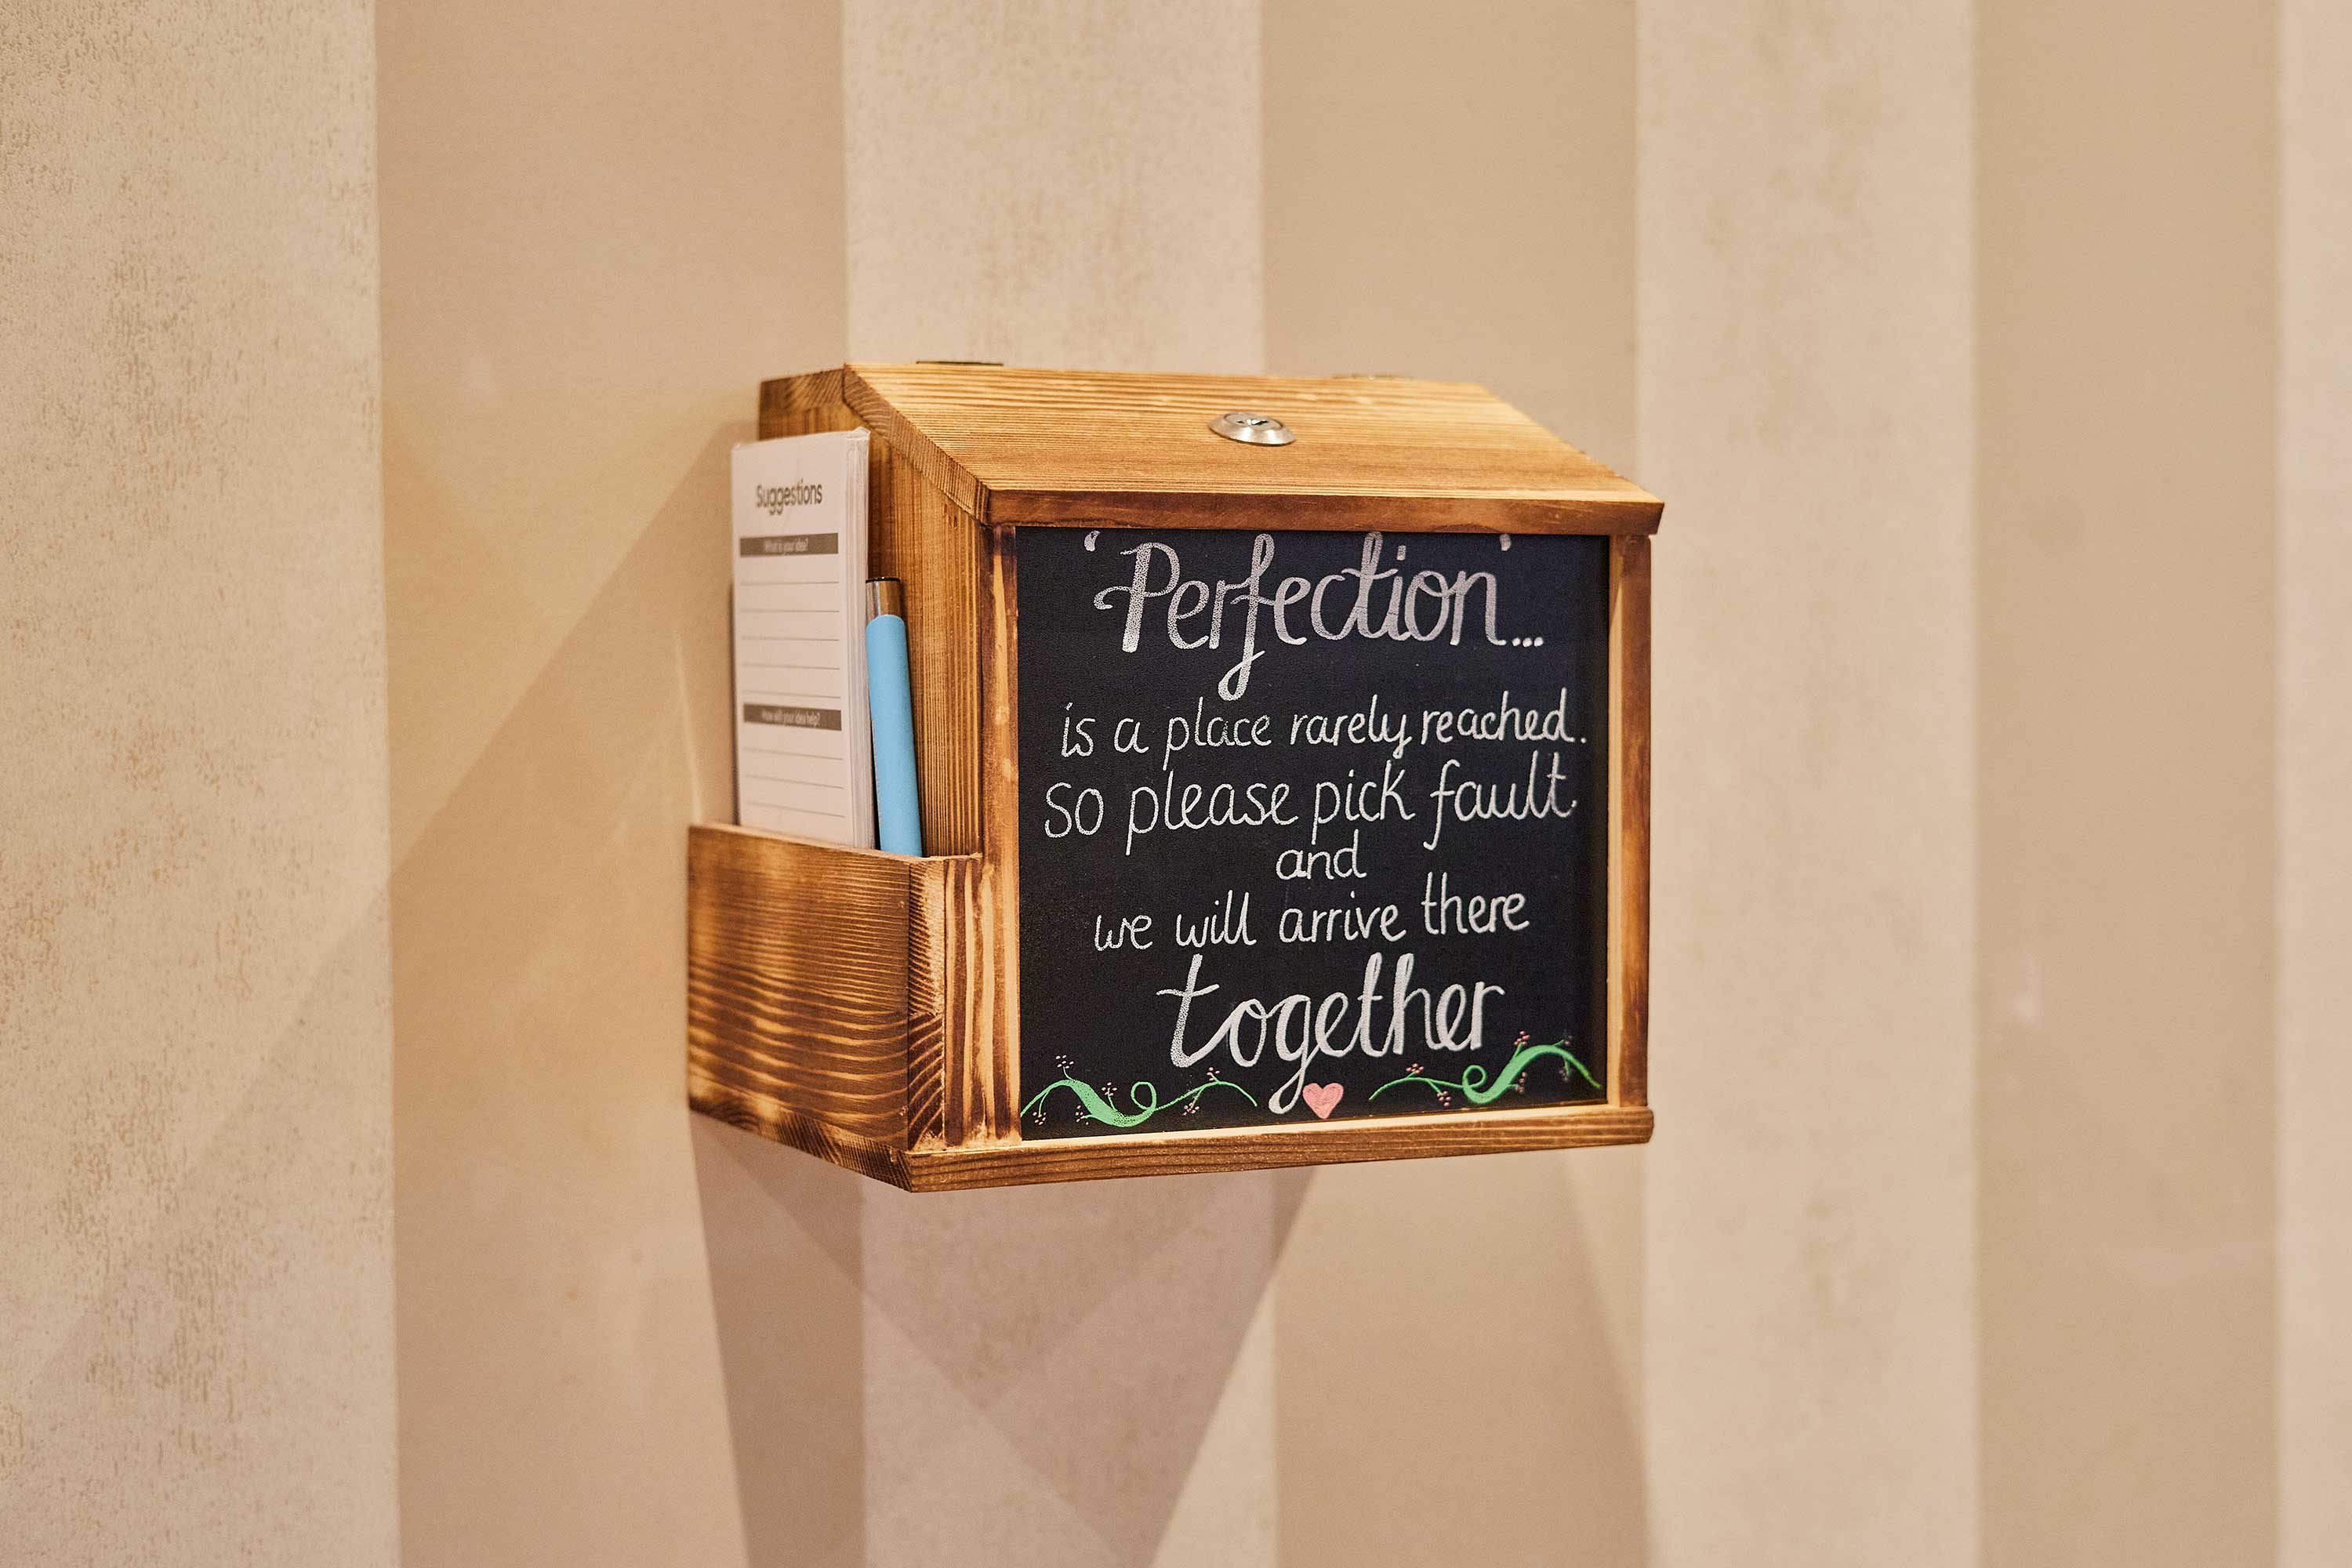 Suggestions
What is your idea?
How will your idea help?
'Perfection'...
is a place rarely reached.
So please pick fault
and
we will arrive there
together